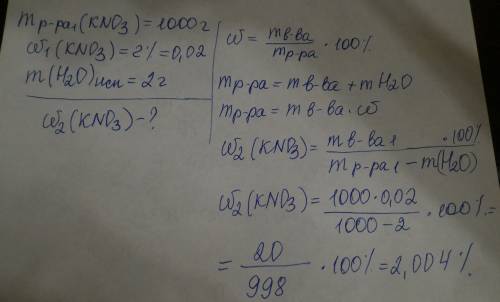 mр-ра1(KNO3)=1000г
ω1(KNO3)=2%=0,02
m(H2O)исп=2г
ω2(KNO3)-?
ω=mв-ва/mр-ра·100%
mр-ра=mв-ва+mH2O
mр-ра=mв-ва·ω
ω2(KNO3)=mв-ва1·100%/mр-ра1-m(H2O)
ω2(KNO3)=1000·0,02/1000-2·100%=
=20/998·100%=2,004%